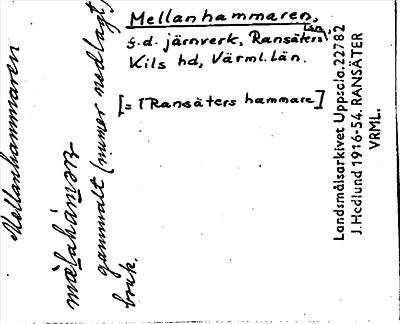 Mellanhammaren,
f.d. järnverk, Ransäters sn,
Kils hd, Värml. län.
[= Ransäters hammare]
Mellanhammaren
gammalt (numer nedlagt)
bruk.
Landsmålsarkivet Uppsala. 22782
J. Hedlund 1916-54. RANSÄTER
VRML.